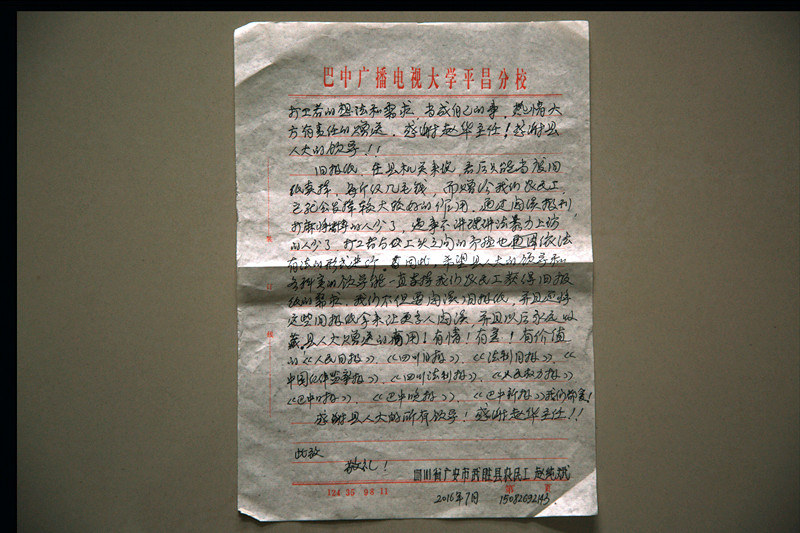 巴中广播电视大学平昌分校
打工者的想法和需求,当成自己的事,热情大
方有责任的赠送,感谢赵华主任!感谢县
人大的领导!!
旧报纸,在县机关来说,看后只能当废旧
纸卖掉,每斤仅几毛钱,而赠给我们农民工,
它就会发挥较大较好的作用,通过阅读报刊,
打麻将赌钱的人少了,遇事不讲理讲法暴力上访
的人少了,打工者与包工头之间的矛盾也通过依法
有法的形式进行。为此,希望县人大的领导和
各科室的领导能一直支持我们农民工获得旧报
纸的需求,我们不但要阅读旧报纸,并且还将
这些旧报纸拿来让更多人阅读,并且以后永远收
藏。县人大赠送的有用!有情!有爱!有价值
的《人民日报》、《四川日报》、《法制日报》、《
中国纪检监察报》、《四川法制报》、《人民权力报》
《巴中日报》、《巴中晚报》、《巴中新报》我们都爱!
感谢县人大的所有领导!感谢赵华主任!!
此致
敬礼!
四川省广安市武胜县农民工 赵纯斌
124 35 98 11
2016年7月 15082692143